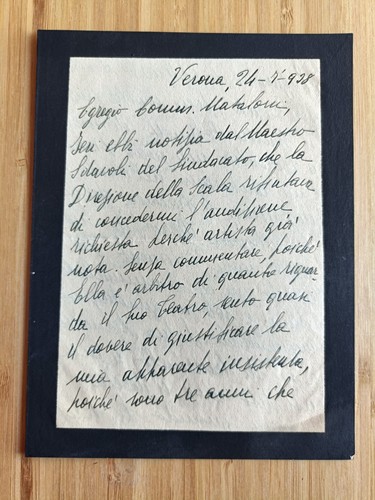 Verona, 24-1-938
Egregio Comm. Mataloni,
Ieri ebbi notizia dal Maestro
del Sindacato, che la
Direzione della Scala rifiutava
di concedermi l'audizione
richiesta perché artista già
nota. Senza commentare, poiché
Ella è arbitro di quanto riguar-
da il Suo Teatro, sento quasi
il dovere di giustificare la
mia apparente insistenza,
poiché sono tre anni che